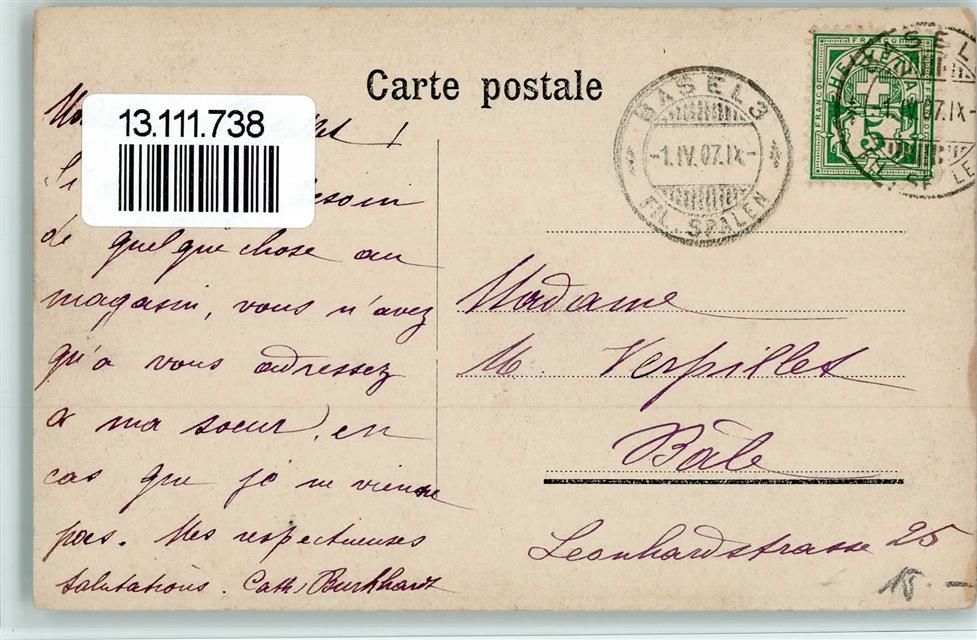 Carte postale
13.111.738
BASEL 3
-1.IV.07.IX-
FIL. SPALEN
FRANCO
HELVETIA
5
-1.IV.07.IX-
besoin
de quelque chose au
magasin, vous n'avez
qu'à vous adressez
à ma soeur, en
cas que je ne vienne
pas. Mes respectueuses
salutations. Cath. Burkhardt
Madame
M. Verpillet
Bâle
Leonhardstrasse 25
18.-